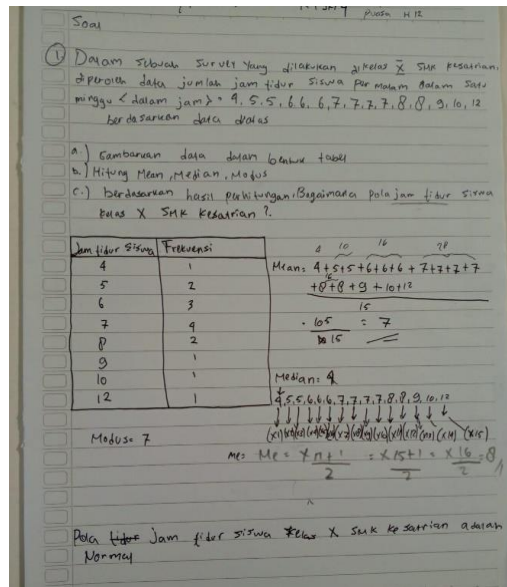 Puasa H12
Soal
① Dalam sebuah survey yang dilakukan di kelas X SMK Kesatrian,
diperoleh data jumlah jam tidur siswa per malam dalam satu
minggu <dalam jam> = 4, 5, 5, 6, 6, 6, 7, 7, 7, 7, 8, 8, 9, 10, 12
berdasarkan data diatas
a.) Gambarkan data dalam bentuk tabel
b.) Hitung Mean, Median, Modus
c.) berdasarkan hasil perhitungan, Bagaimana pola jam tidur siswa
kelas X SMK Kesatrian ?.
Jam tidur siswa Frekuensi
4 1
5 2
6 3
7 4
8 2
9 1
10 1
12 1
4 10 16 28
Mean: 4+5+5+6+6+6+7+7+7+7
16
+8+8+9+10+12
15
105 = 7
15
Median: 4
4,5,5,6,6,6,7,7,7,7,8,8,9,10,12
(x13) (x14) (x15)
Modus= 7
me= Me = x n+1 = x 15+1 = x 16 = 8
2 2 2
Pola jam tidur siswa kelas X SMK Kesatrian adalah
Normal